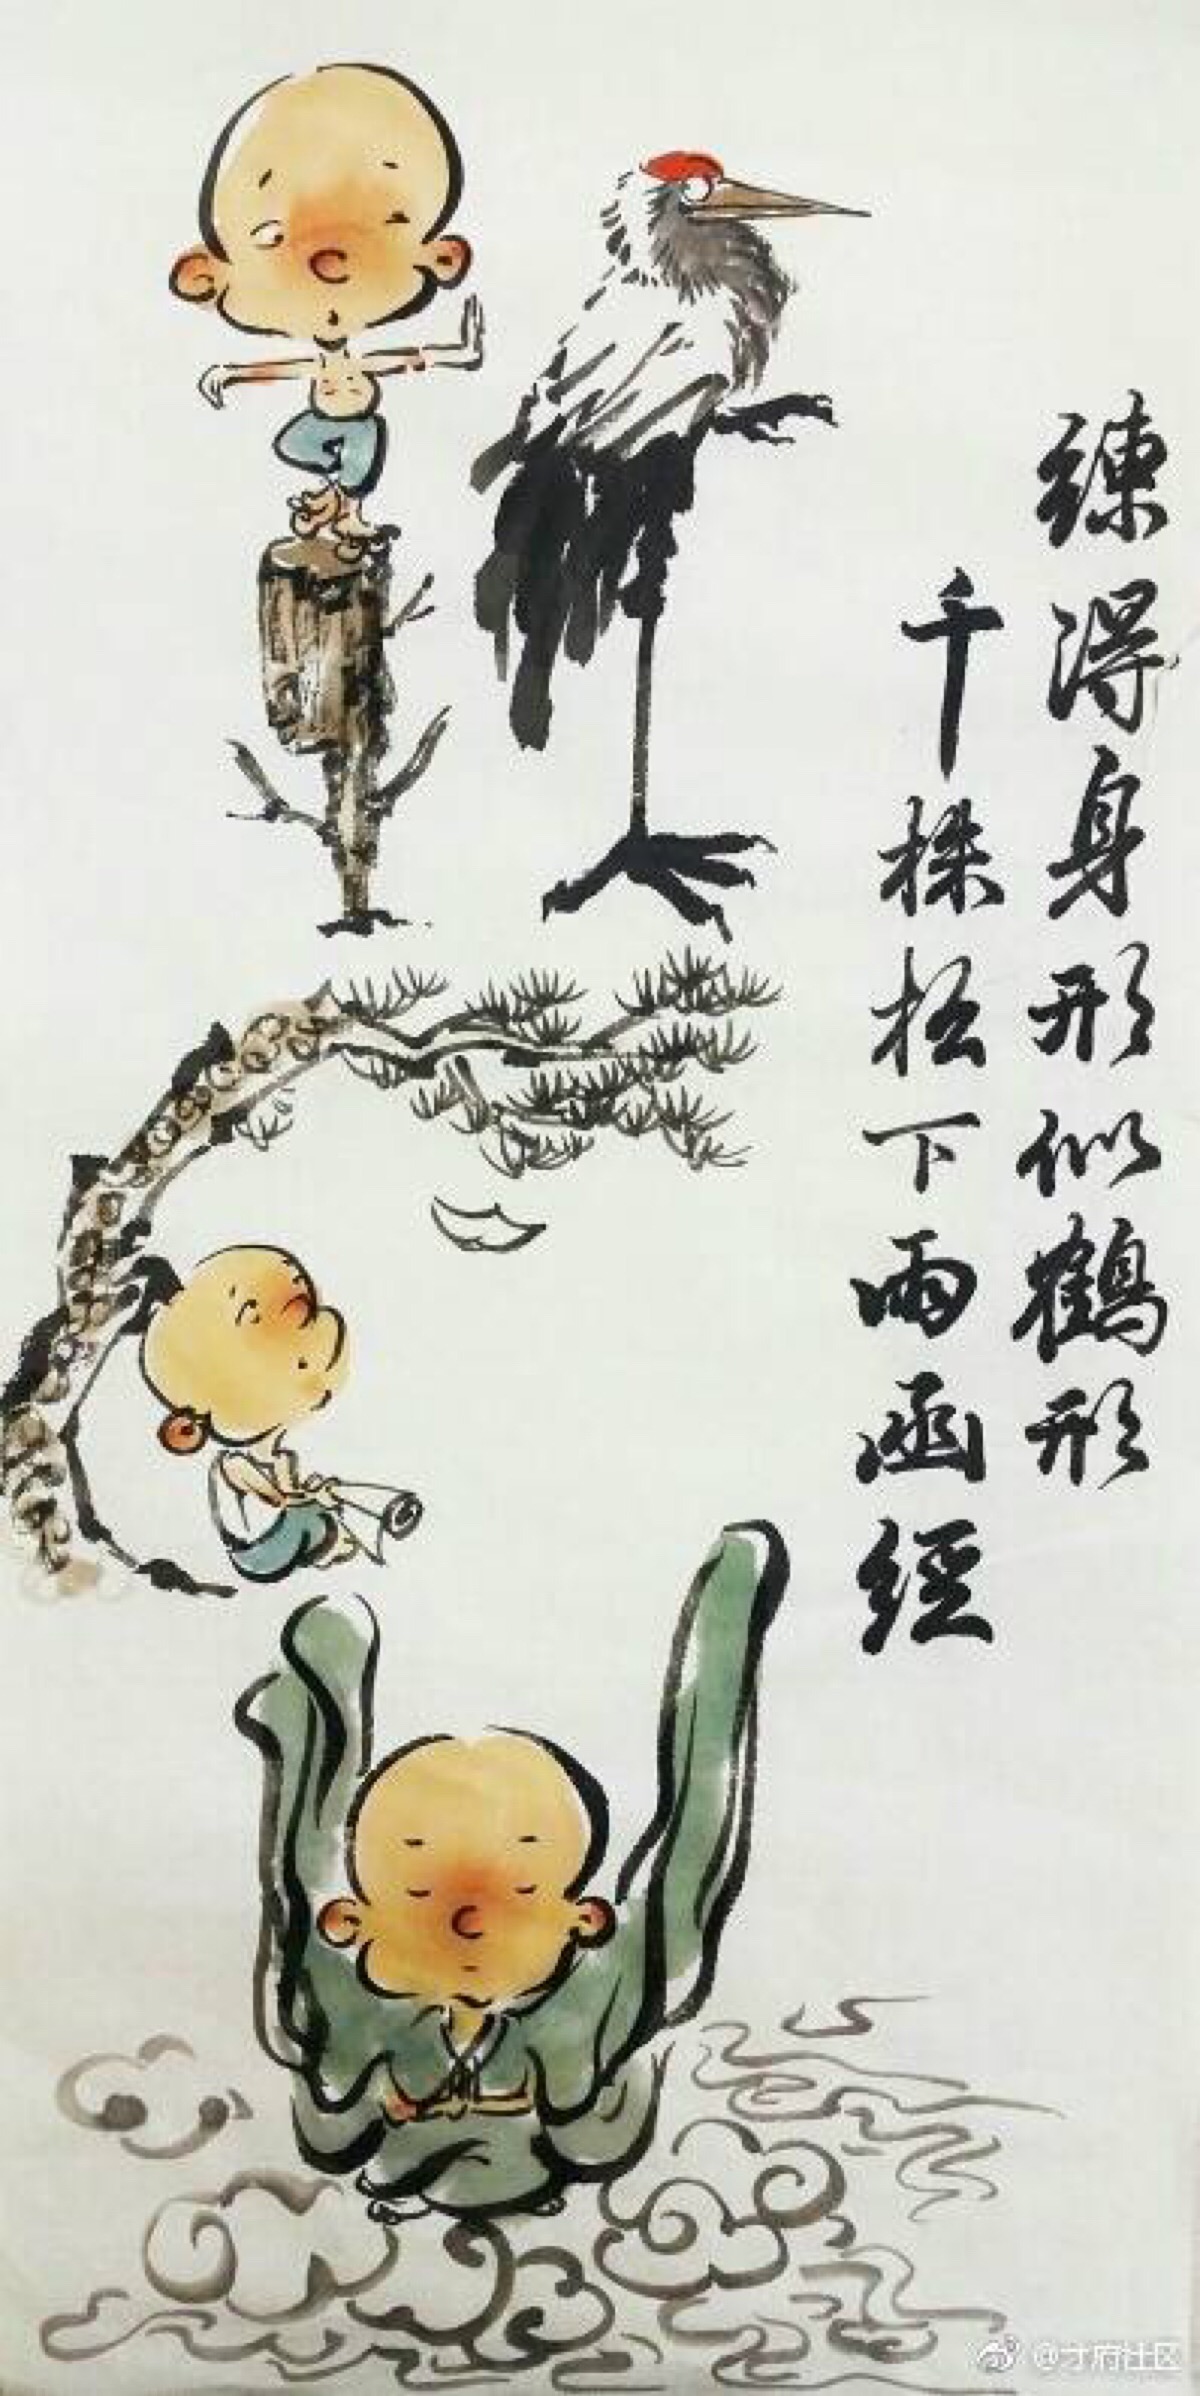 練得身形似鶴形
千株松下兩函經
@才府社区